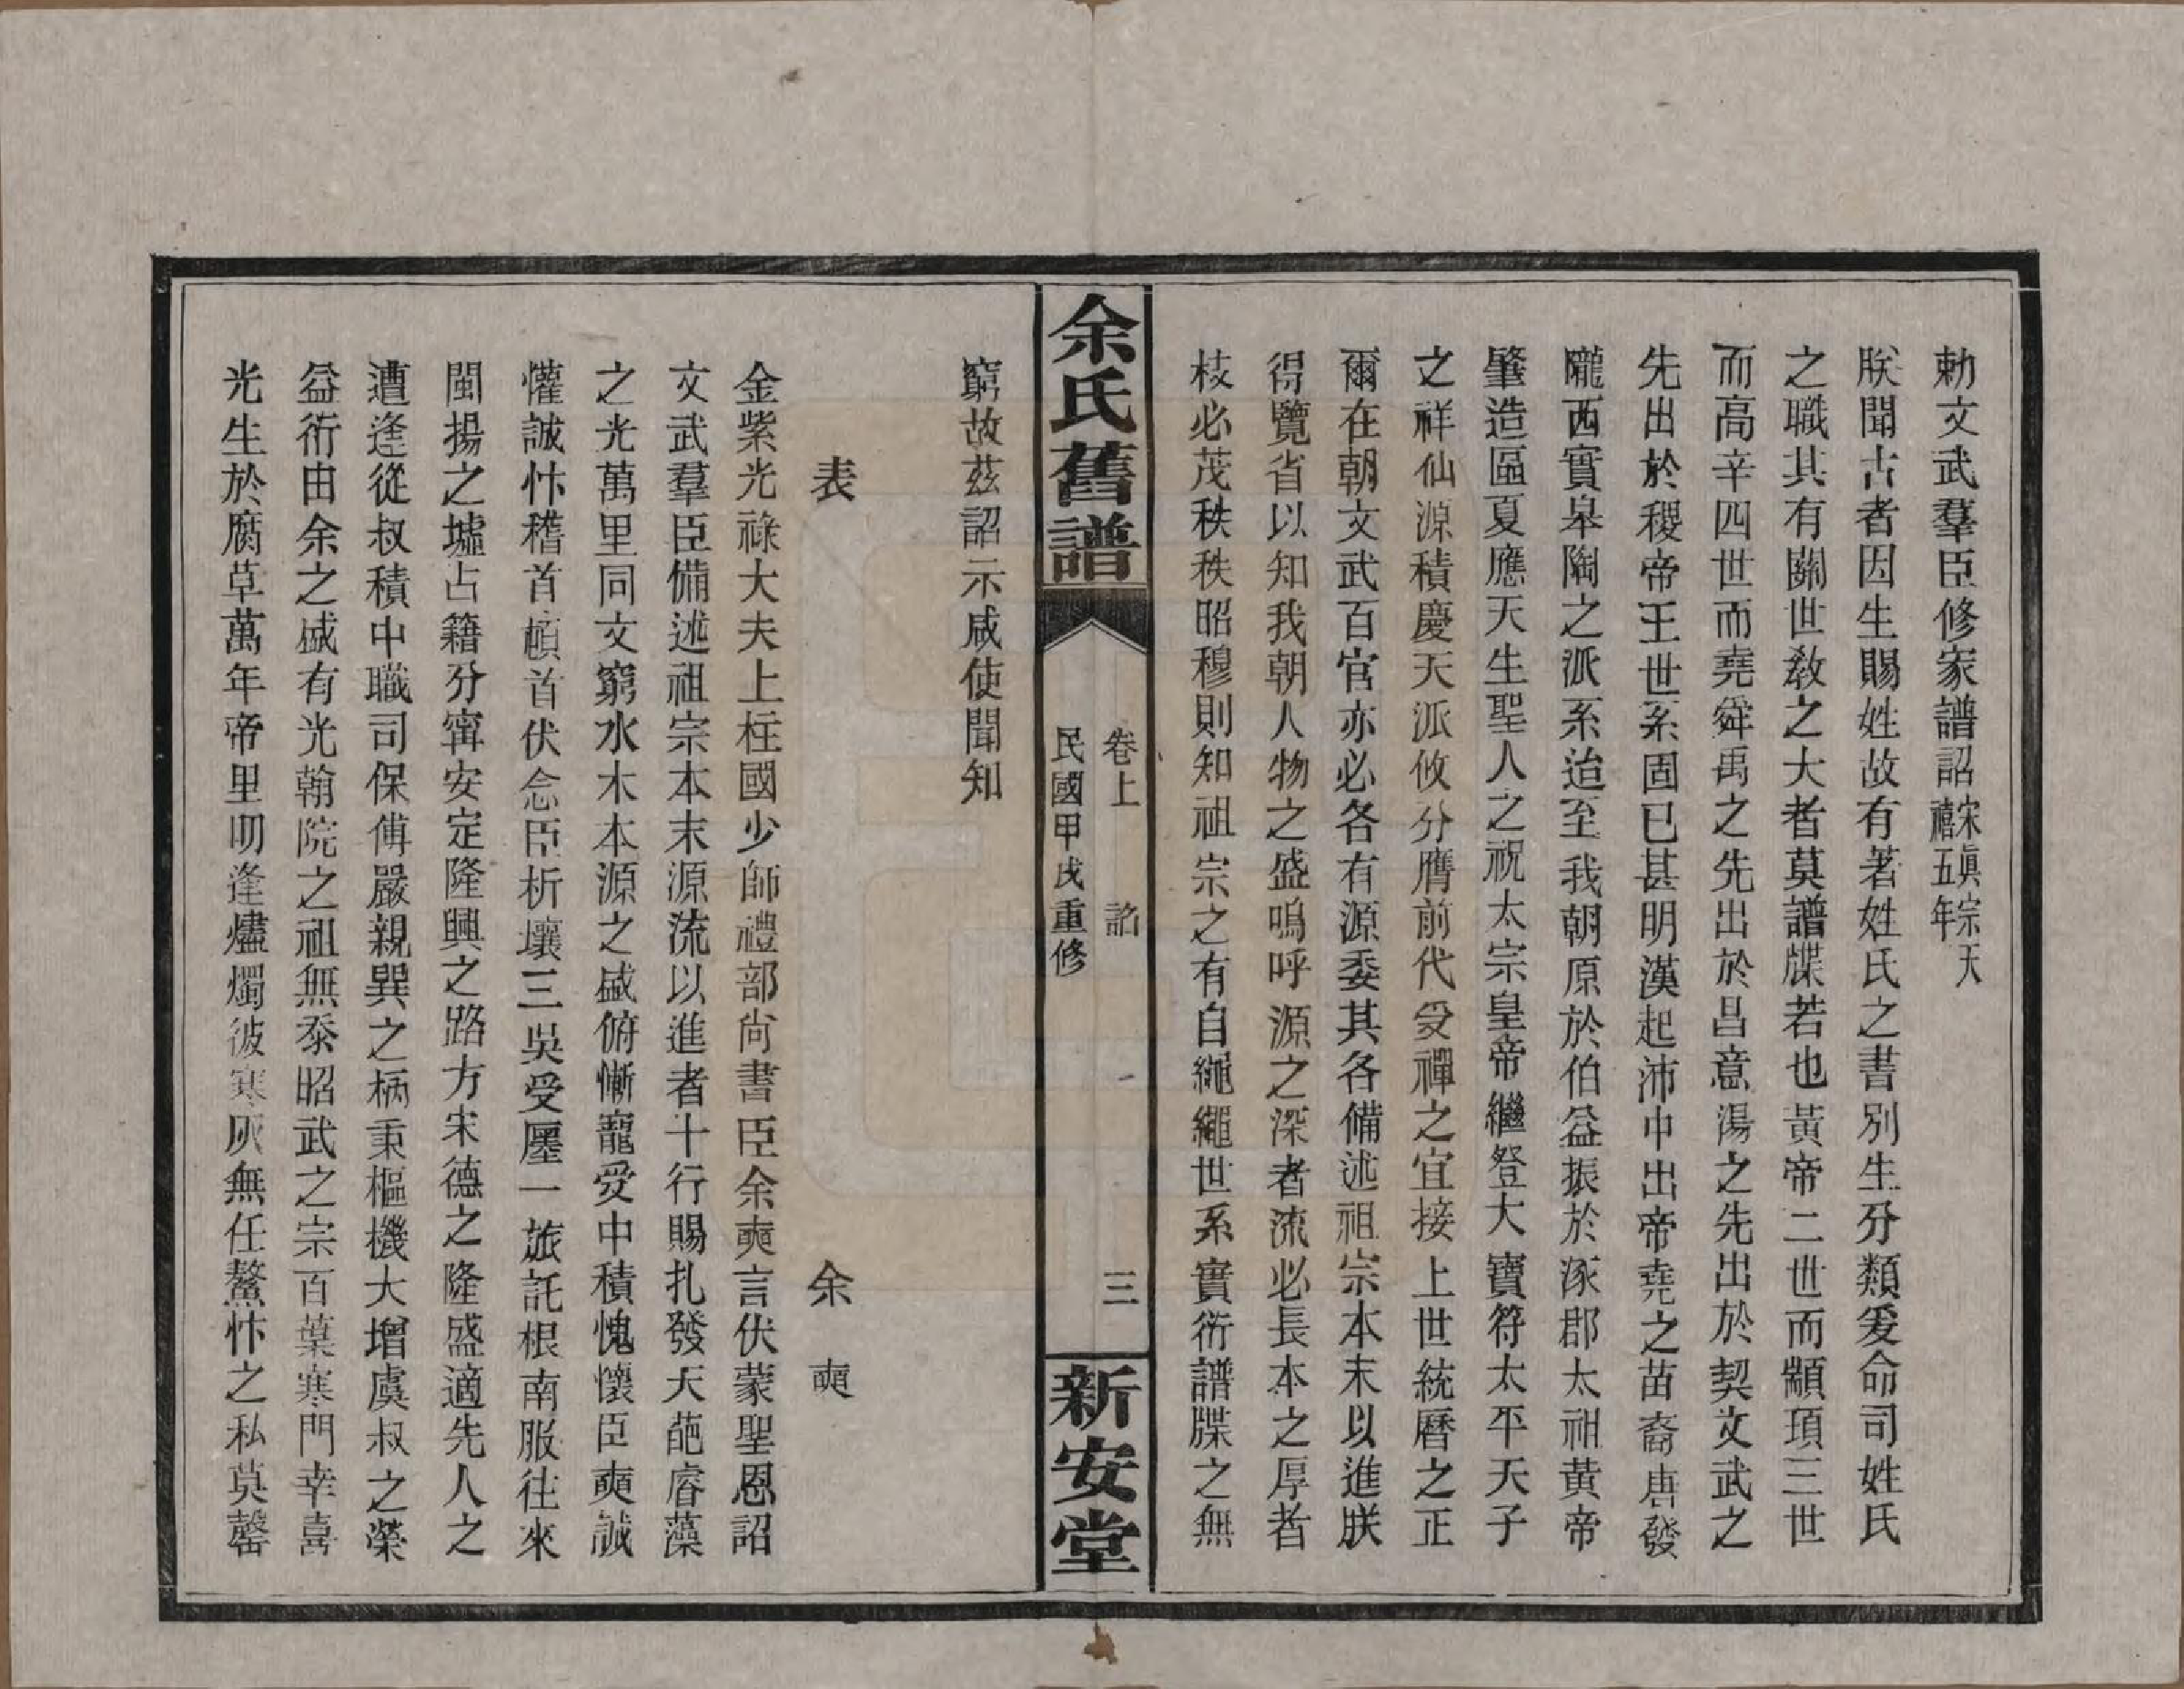 勅文武羣臣修家譜詔宋眞宗天禧五年
朕聞古者因生賜姓故有著姓氏之書別生分類爰命司姓氏
之職其有關世敎之大者莫譜牒若也黃帝二世而顓頊三世
而高辛四世而堯舜禹之先出於昌意湯之先出於契文武之
先出於稷帝王世系固已甚明漢起沛中出帝堯之苗裔唐發
隴西實皋陶之派系迨至我朝原於伯益振於涿郡太祖黃帝
肇造區夏應天生聖人之祝太宗皇帝繼登大寶符太平天子
之祥仙源積慶天派攸分膺前代受禪之宜接上世統曆之正
爾在朝文武百官亦必各有源委其各備述祖宗本末以進朕
得覽省以知我朝人物之盛嗚呼源之深者流必長本之厚者
枝必茂秩秩昭穆則知祖宗之有自繩繩世系實衍譜牒之無
余氏舊譜
卷上 詔 三
民國甲戌重修
新安堂
窮故茲詔示咸使聞知
表 余奭
金紫光祿大夫上柱國少師禮部尙書臣余奭言伏蒙聖恩詔
文武羣臣備述祖宗本末源流以進者十行賜扎發天葩睿藻
之光萬里同文窮水木本源之盛俯慚寵受中積愧懷臣奭誠
懽誠忭稽首頓首伏念臣析壤三吳受廛一旅託根南服往來
閩揚之墟占籍分甯安定隆興之路方宋德之隆盛適先人之
遭逢從叔積中職司保傅嚴親巽之柄秉樞機大增虞叔之榮
益衍由余之盛有光翰院之祖無忝昭武之宗百葉寒門幸喜
光生於腐草萬年帝里叨逢燼燭彼寒灰無任鰲忭之私莫罄